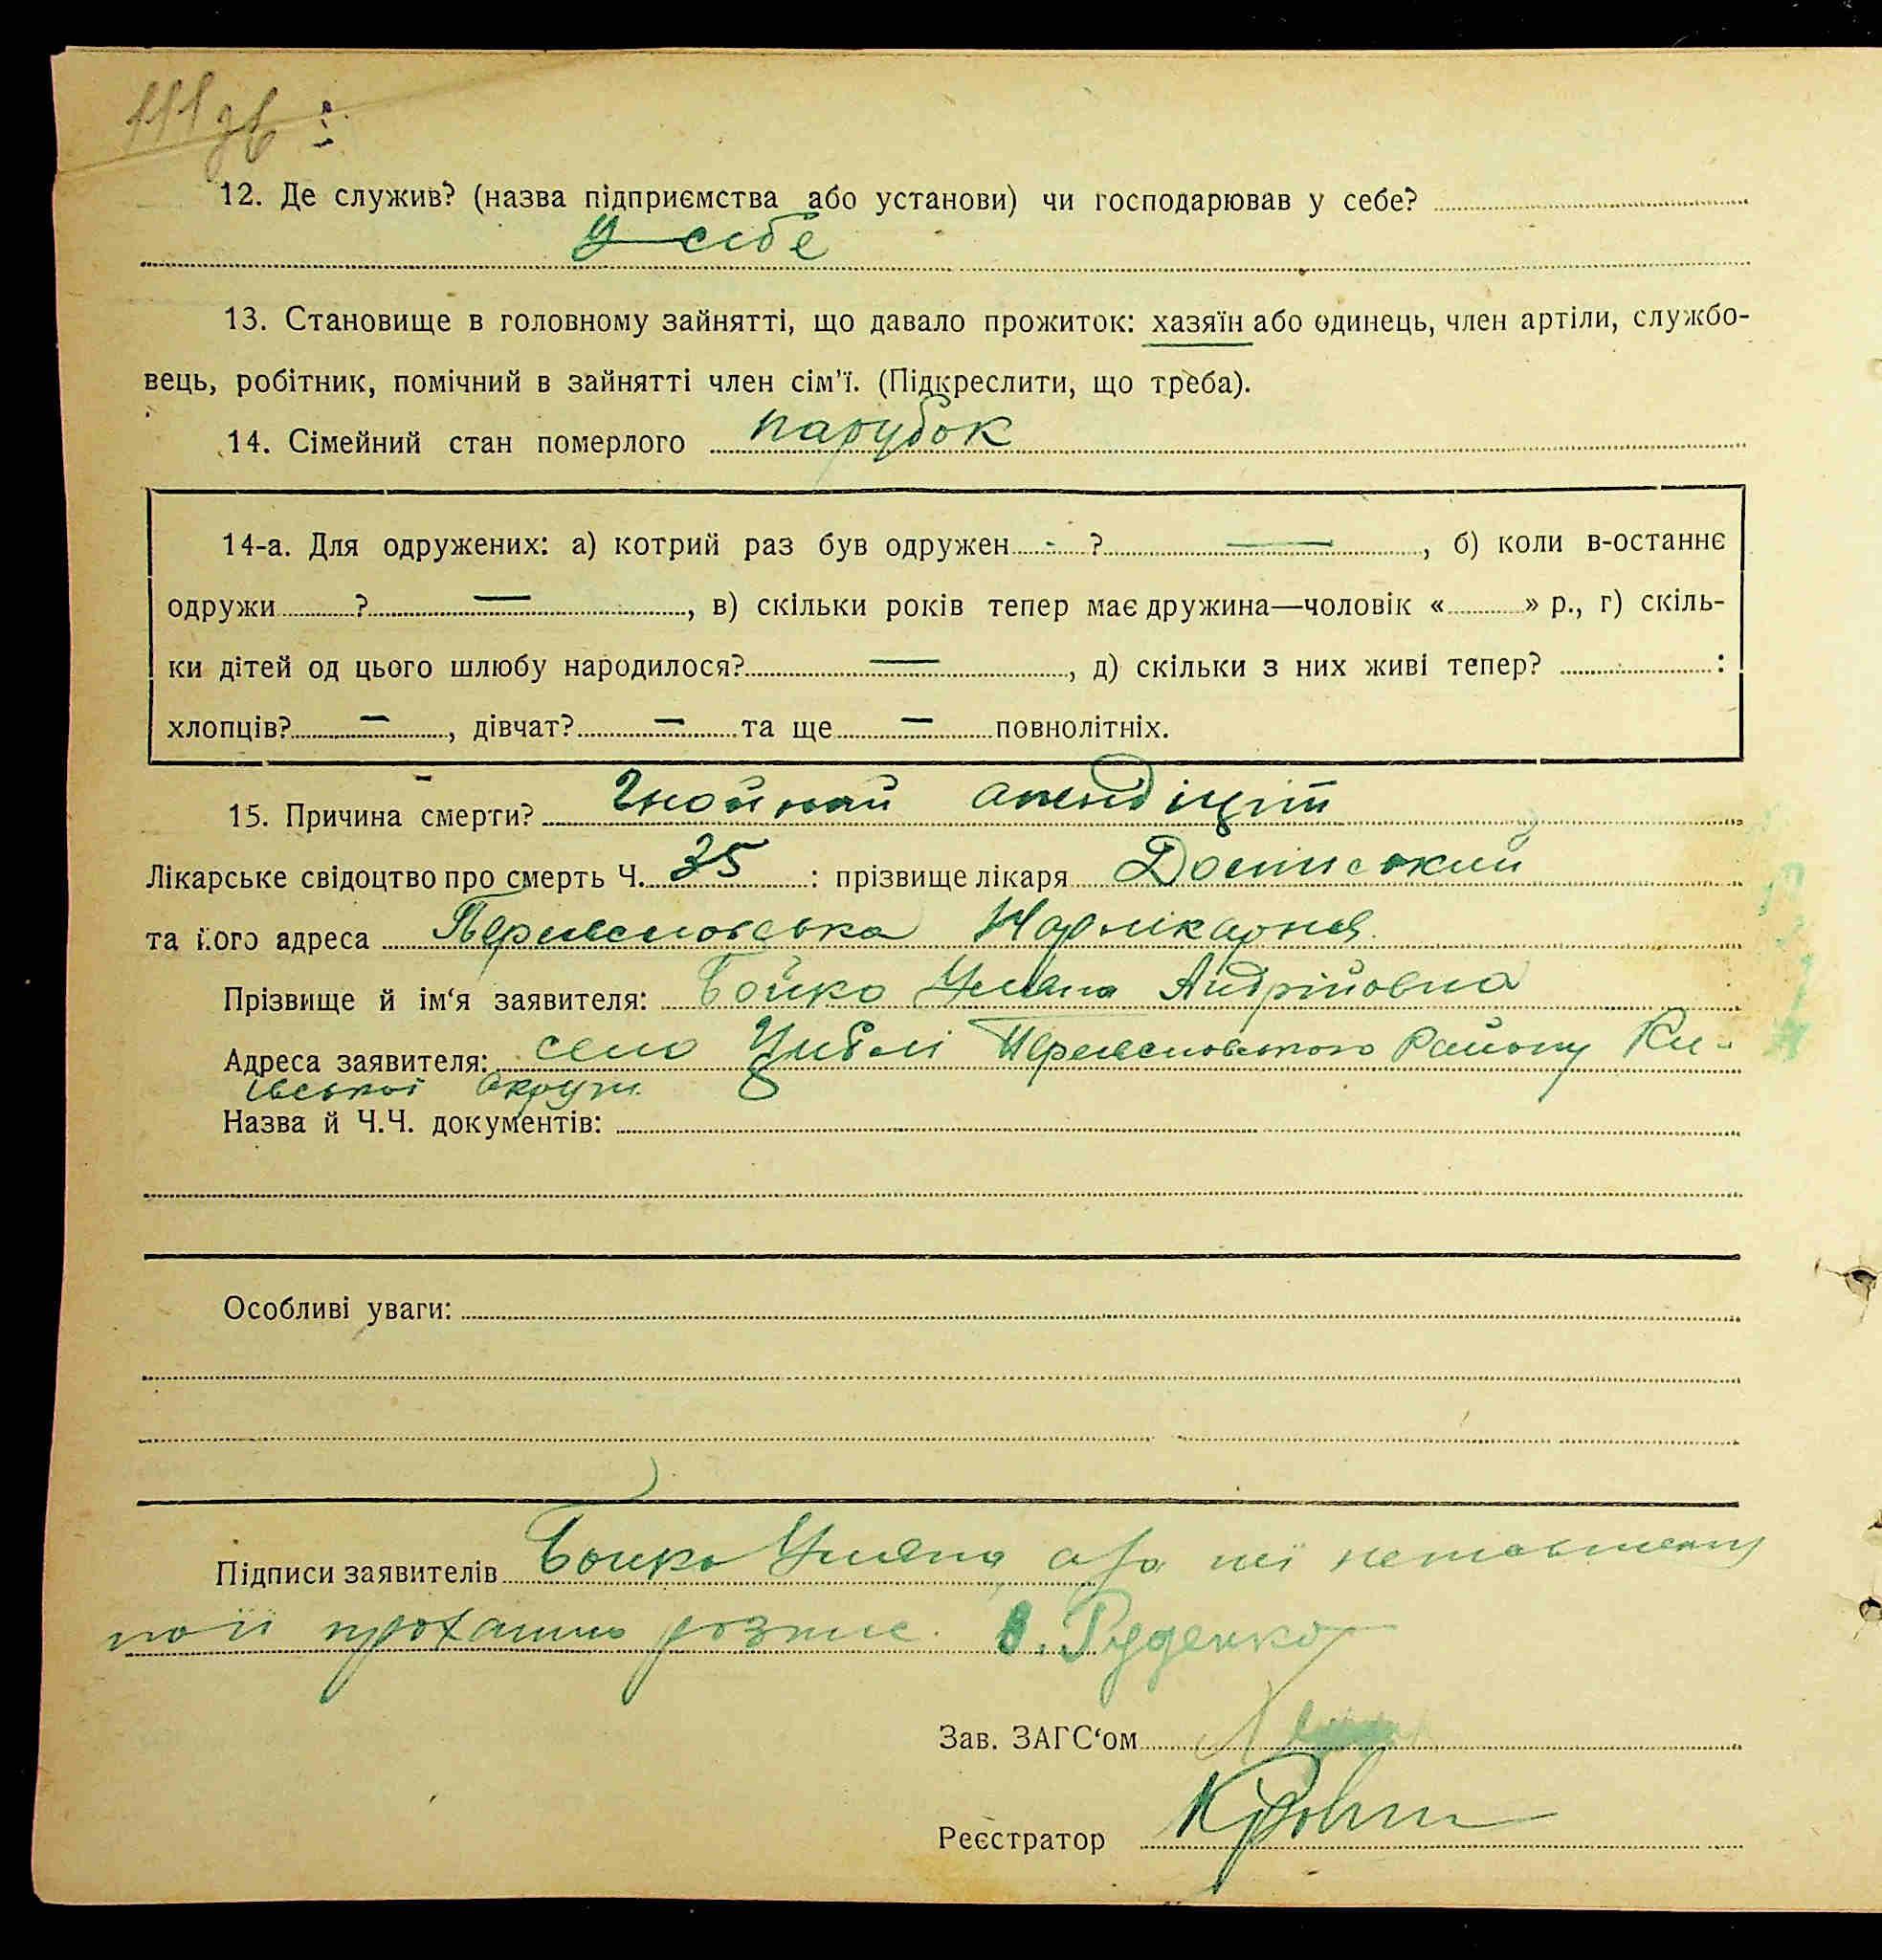 111 зв
12. Де служив? (назва підприємства або установи) чи господарював у себе?
у себе
13. Становище в головному зайнятті, що давало прожиток: хазяїн або одинець, член артіли, службо-
вець, робітник, помічний в зайнятті член сім'ї. (Підкреслити, що треба).
14. Сімейний стан померлого парубок
14-а. Для одружених: а) котрий раз був одружен - ? —, б) коли в-останнє
одружи ? —, в) скільки років тепер має дружина—чоловік « » р., г) скіль-
ки дітей од цього шлюбу народилося? —, д) скільки з них живі тепер? :
хлопців? —, дівчат? — та ще — повнолітніх.
15. Причина смерти? Гнойний апендіціт
Лікарське свідоцтво про смерть Ч. 35 : прізвище лікаря
та його адреса Переяславська Нарлікарня
Прізвище й ім'я заявителя: Бойко Уляна Андрійовна
Адреса заявителя: село Циблі Переяславського Району Ки-
ївської Округи
Назва й Ч.Ч. документів:
Особливі уваги:
Підписи заявителів Бойко Уляна, а за неї
по її проханню розпис. В. Руденко
Зав. ЗАГС'ом
Реєстратор